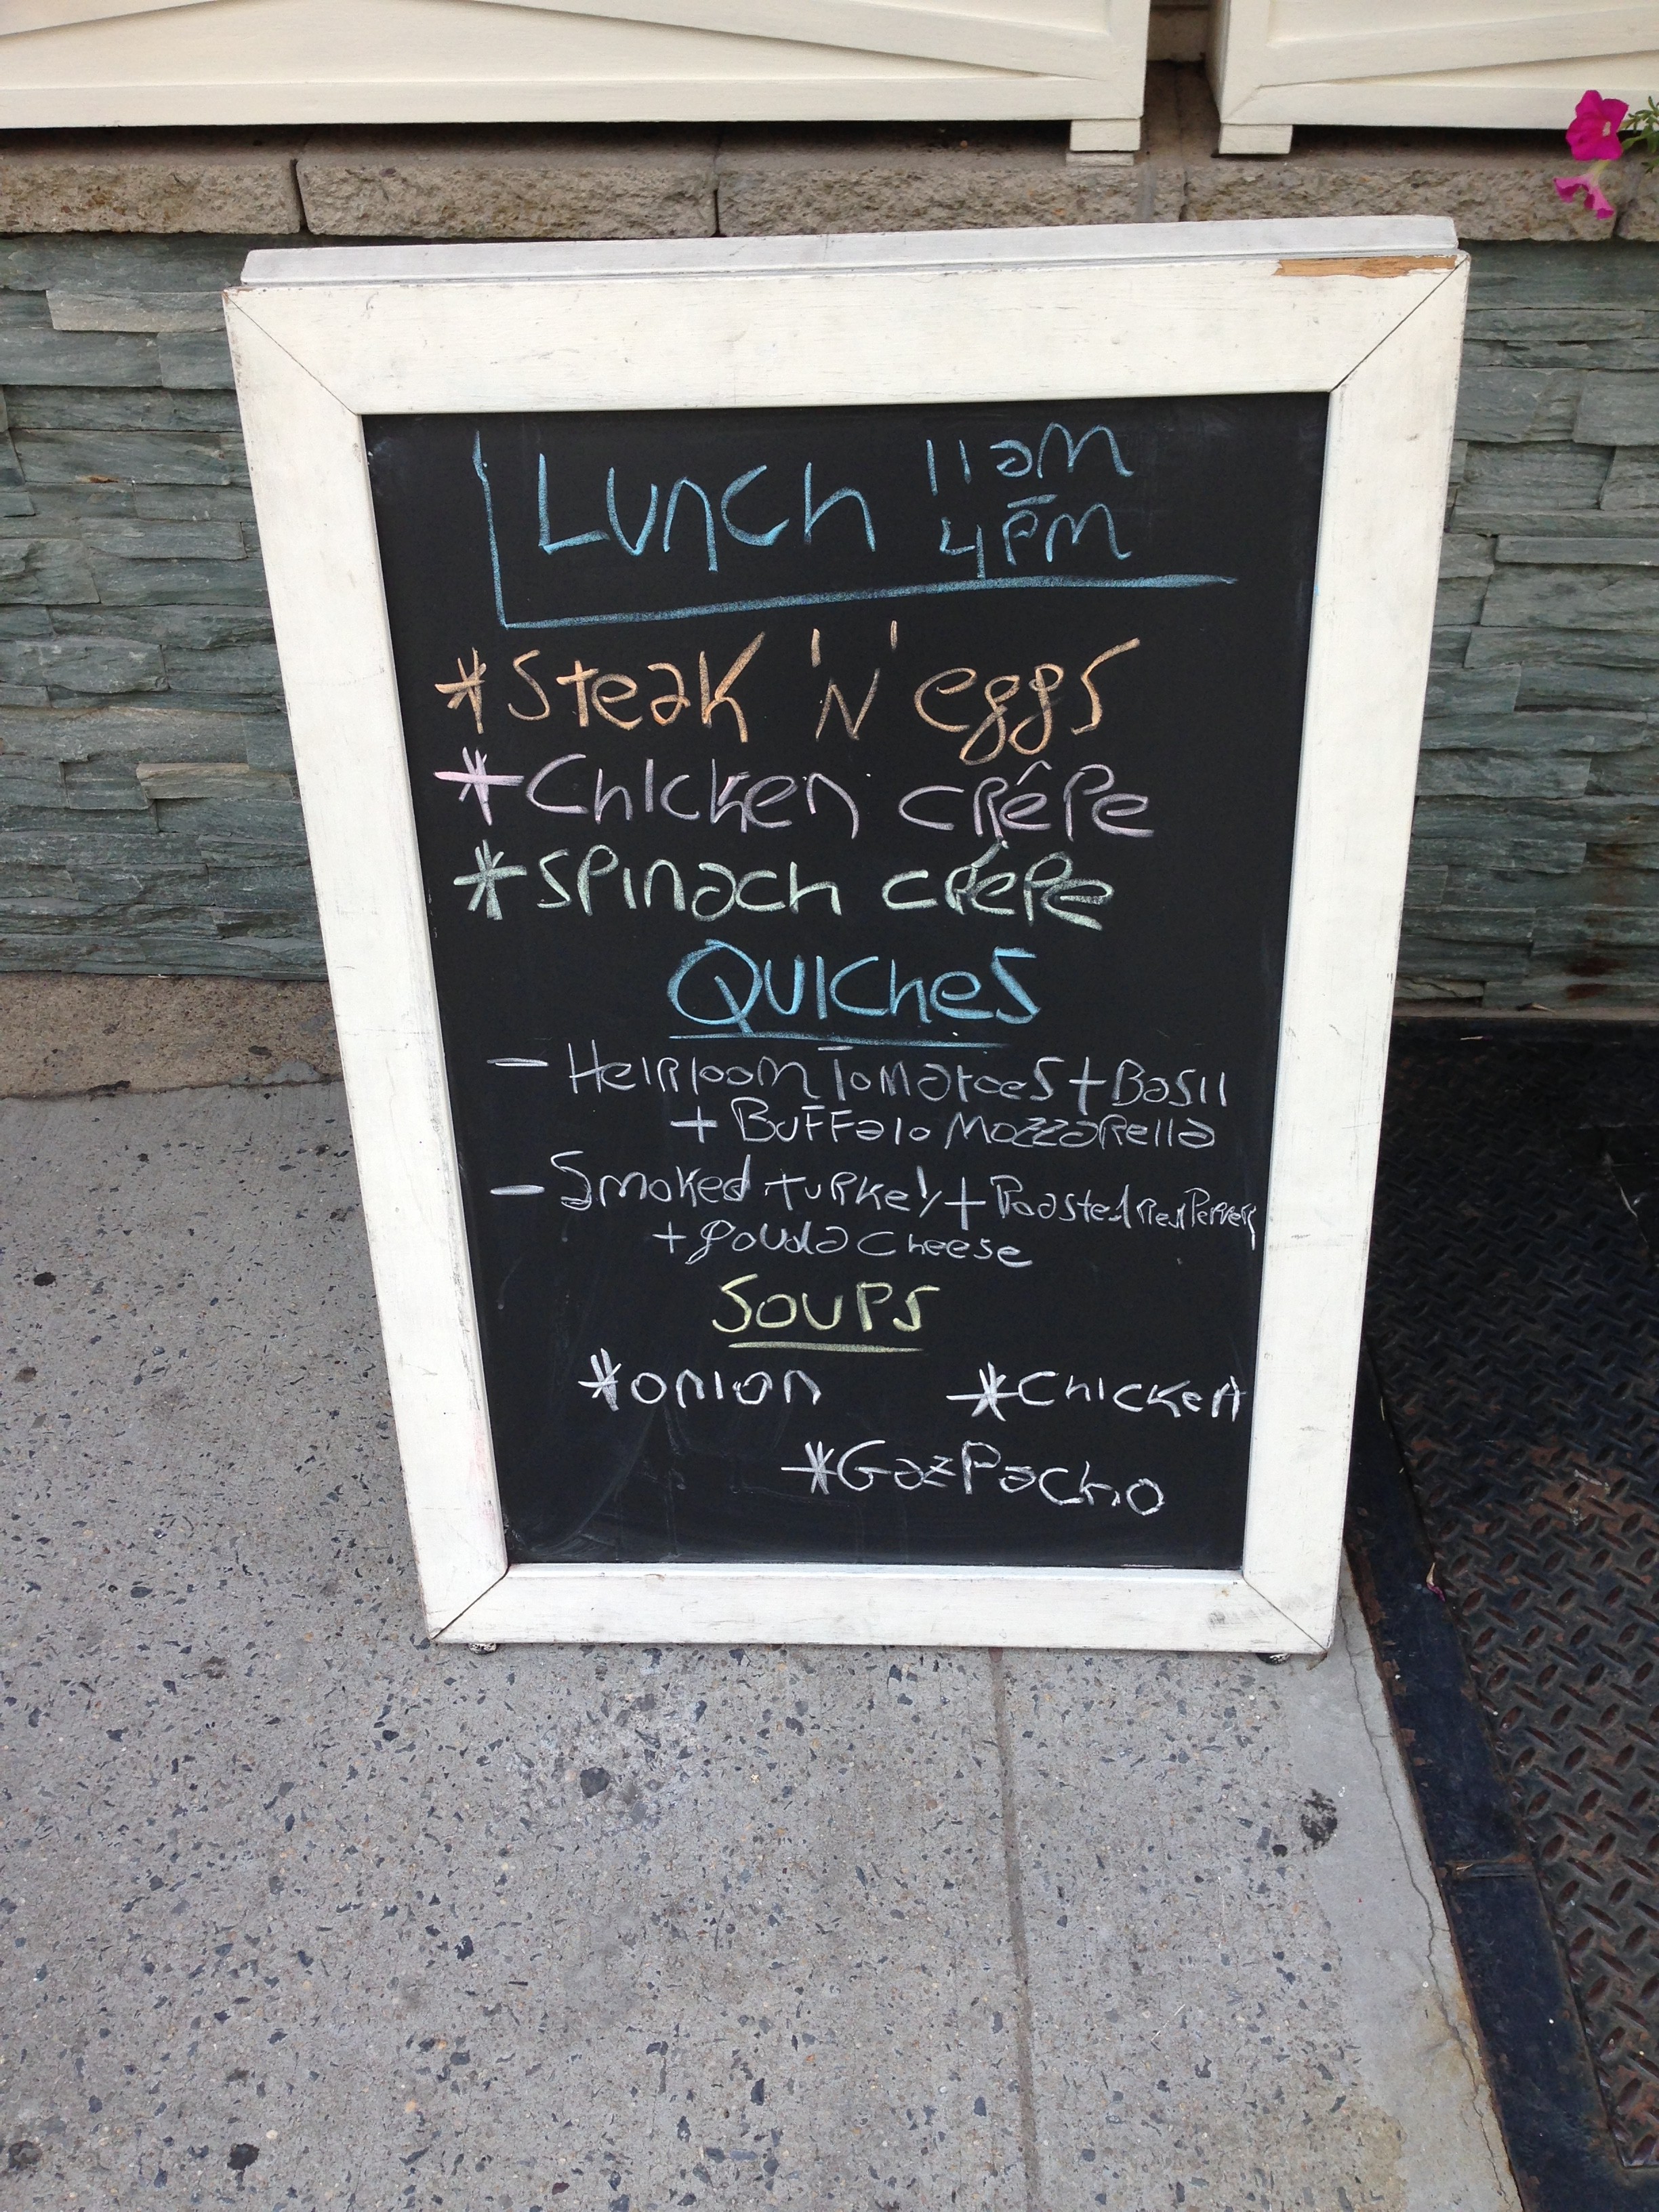 Lunch 11am
4pm
*Steak 'N' eggs
*Chicken crêpe
*Spinach crêpe
Quiches
- Heirloom Tomatoes + Basil
+ Buffalo Mozzarella
- Smoked turkey + Roasted Red Peppers
+ gouda cheese
Soups
*onion *Chicken
*Gazpacho